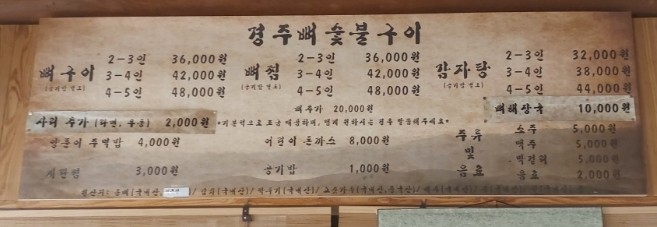 경주뼈숯불구이
뼈구이 (공기밥 별도)
2-3인 36,000원
3-4인 42,000원
4-5인 48,000원
뼈찜 (공기밥 별도)
2-3인 36,000원
3-4인 42,000원
4-5인 48,000원
감자탕 (공기밥 별도)
2-3인 32,000원
3-4인 38,000원
4-5인 44,000원
뼈추가 20,000원
뼈해장국 10,000원
사리 추가 (라면, 우동) 2,000원
주먹밥 4,000원
어린이 돈까스 8,000원
계란찜 3,000원
공기밥 1,000원
주류 및 음료
소주 5,000원
맥주 5,000원
막걸리 5,000원
음료 2,000원